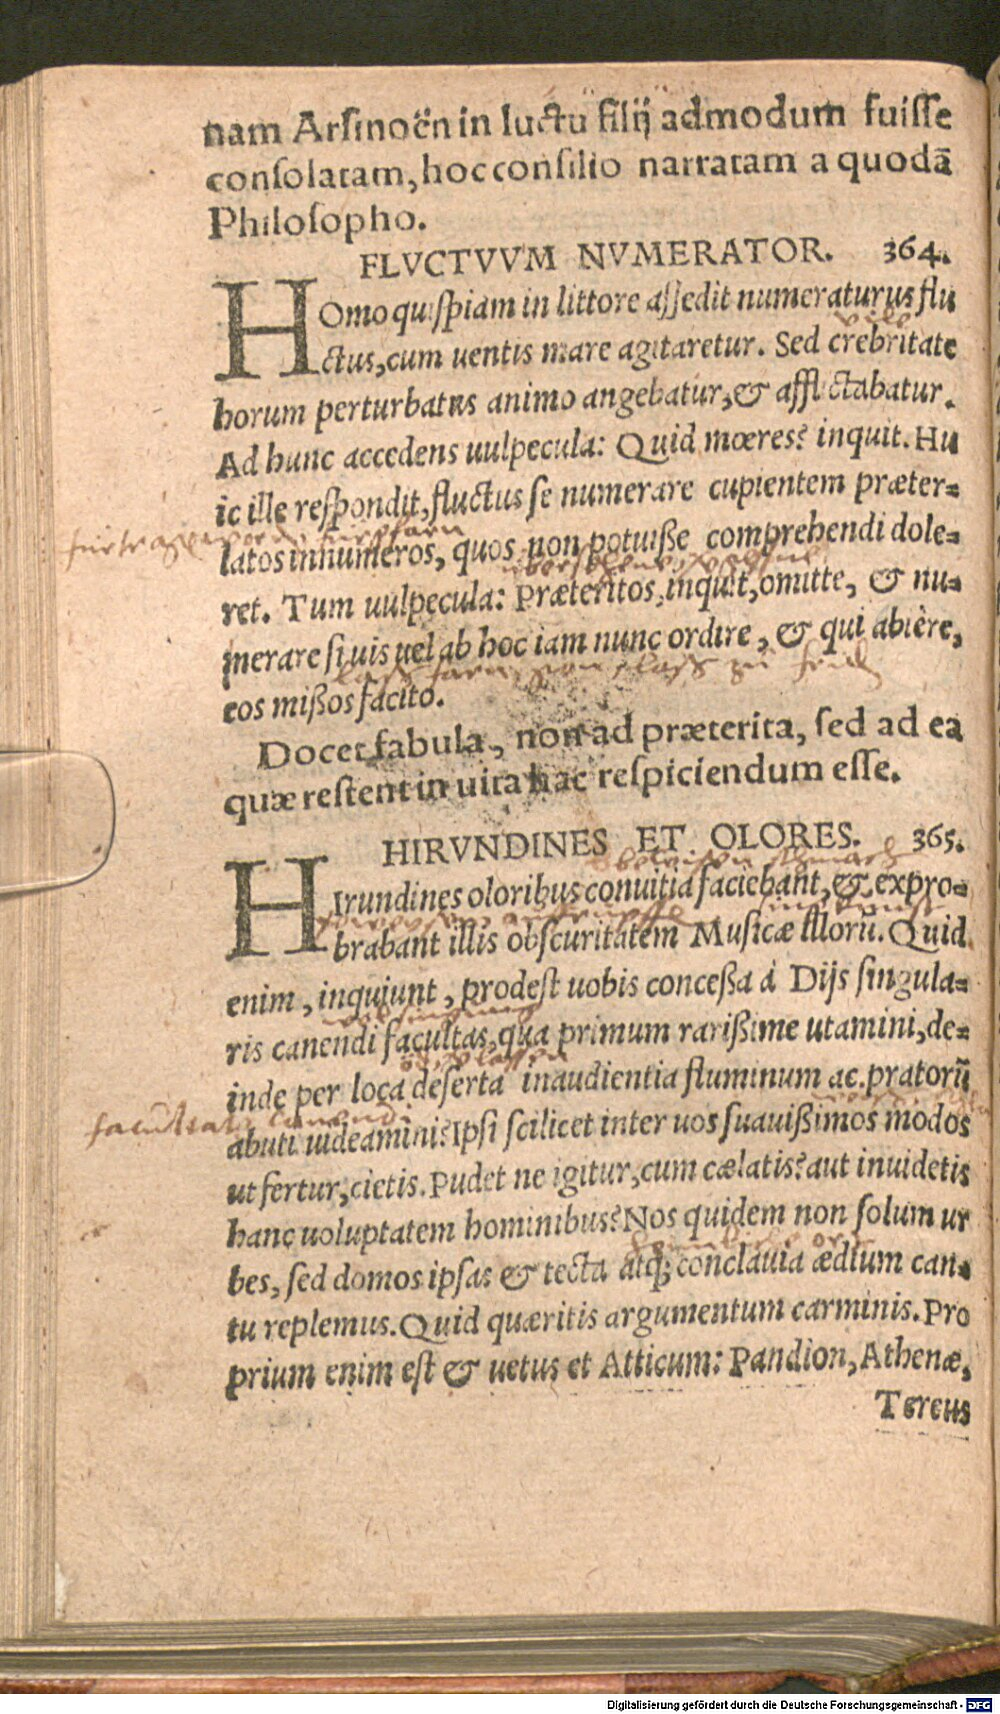 nam Arſinoën in luctu filij admodum fuiſſe
conſolatam, hoc conſilio narratam a quodā
Philoſopho.
FLVCTVVM NVMERATOR. 364.
HOmo quiſpiam in littore aſſedit numeraturus flu
ctus, cum uentis mare agitaretur. Sed crebritate
horum perturbatus animo angebatur, & afflictabatur.
Ad hunc accedens uulpecula: Quid mœres? inquit. Hu
ic ille reſpondit, fluctus ſe numerare cupientem præter=
latos innumeros, quos non potuiſſe comprehendi dole=
ret. Tum uulpecula: Præteritos, inquit, omitte, & nu=
merare ſi uis uel ab hoc iam nunc ordire, & qui abière,
eos mißos facito.
Docet fabula, non ad præterita, ſed ad ea
quæ reſtent in uita hac reſpiciendum eſſe.
HIRVNDINES ET OLORES. 365.
HIrundines oloribus conuitia faciebant, & expro=
brabant illis obſcuritatem Muſicæ illorū. Quid
enim, inquiunt, prodeſt uobis conceßa à Dijs ſingula=
ris canendi facultas, qua primum rarißime utamini, de=
inde per loca deſerta inaudientia fluminum ac pratorū
facultate canendi
abuti uideamini? Ipſi ſcilicet inter uos ſuauißimos modos
ut fertur, cietis. Pudet ne igitur, cum cælatis? aut inuidetis
hanc uoluptatem hominibus? Nos quidem non ſolum ur
bes, ſed domos ipſas & tecta atq; conclauia ædium can=
tu replemus. Quid quæritis argumentum carminis. Pro
prium enim eſt & uetus et Atticum: Pandion, Athenæ,
Tereus
Digitalisierung gefördert durch die Deutsche Forschungsgemeinschaft - DFG